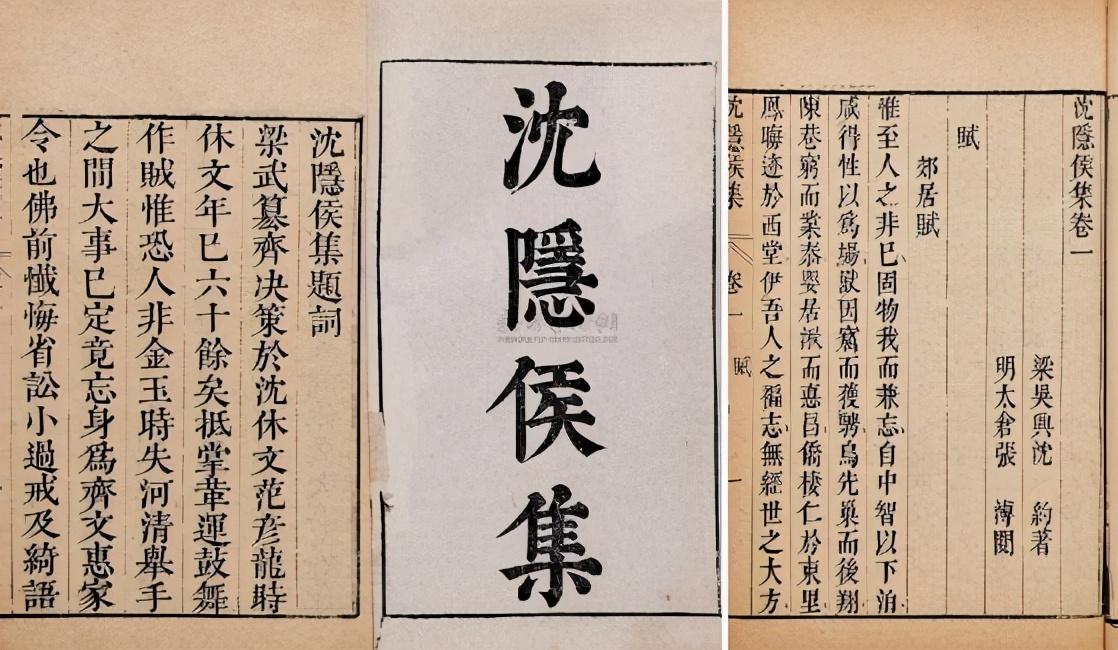 沈隱侯集題詞
梁武篡齊决策於沈休文范彥龍時
休文年已六十餘矣抵掌革運鼓舞
作賊惟恐人非金玉時失河清舉手
之間大事已定竟忘身爲齊文惠家
令也佛前懺悔省訟小過戒及綺語
沈隱侯集
沈隱侯集卷一
梁吳興沈 約著
明太倉張 溥閱
賦
郊居賦
惟至人之非已固物我而兼忘自中智以下洎
咸得性以爲場獸因窟而獲騁鳥先巢而後翔
陳巷窮而業泰嬰居湫而惪昌僑棲仁於東里
鳳晦迹於西堂伊吾人之褊志無經世之大方
沈隱侯集 卷一 賦 一